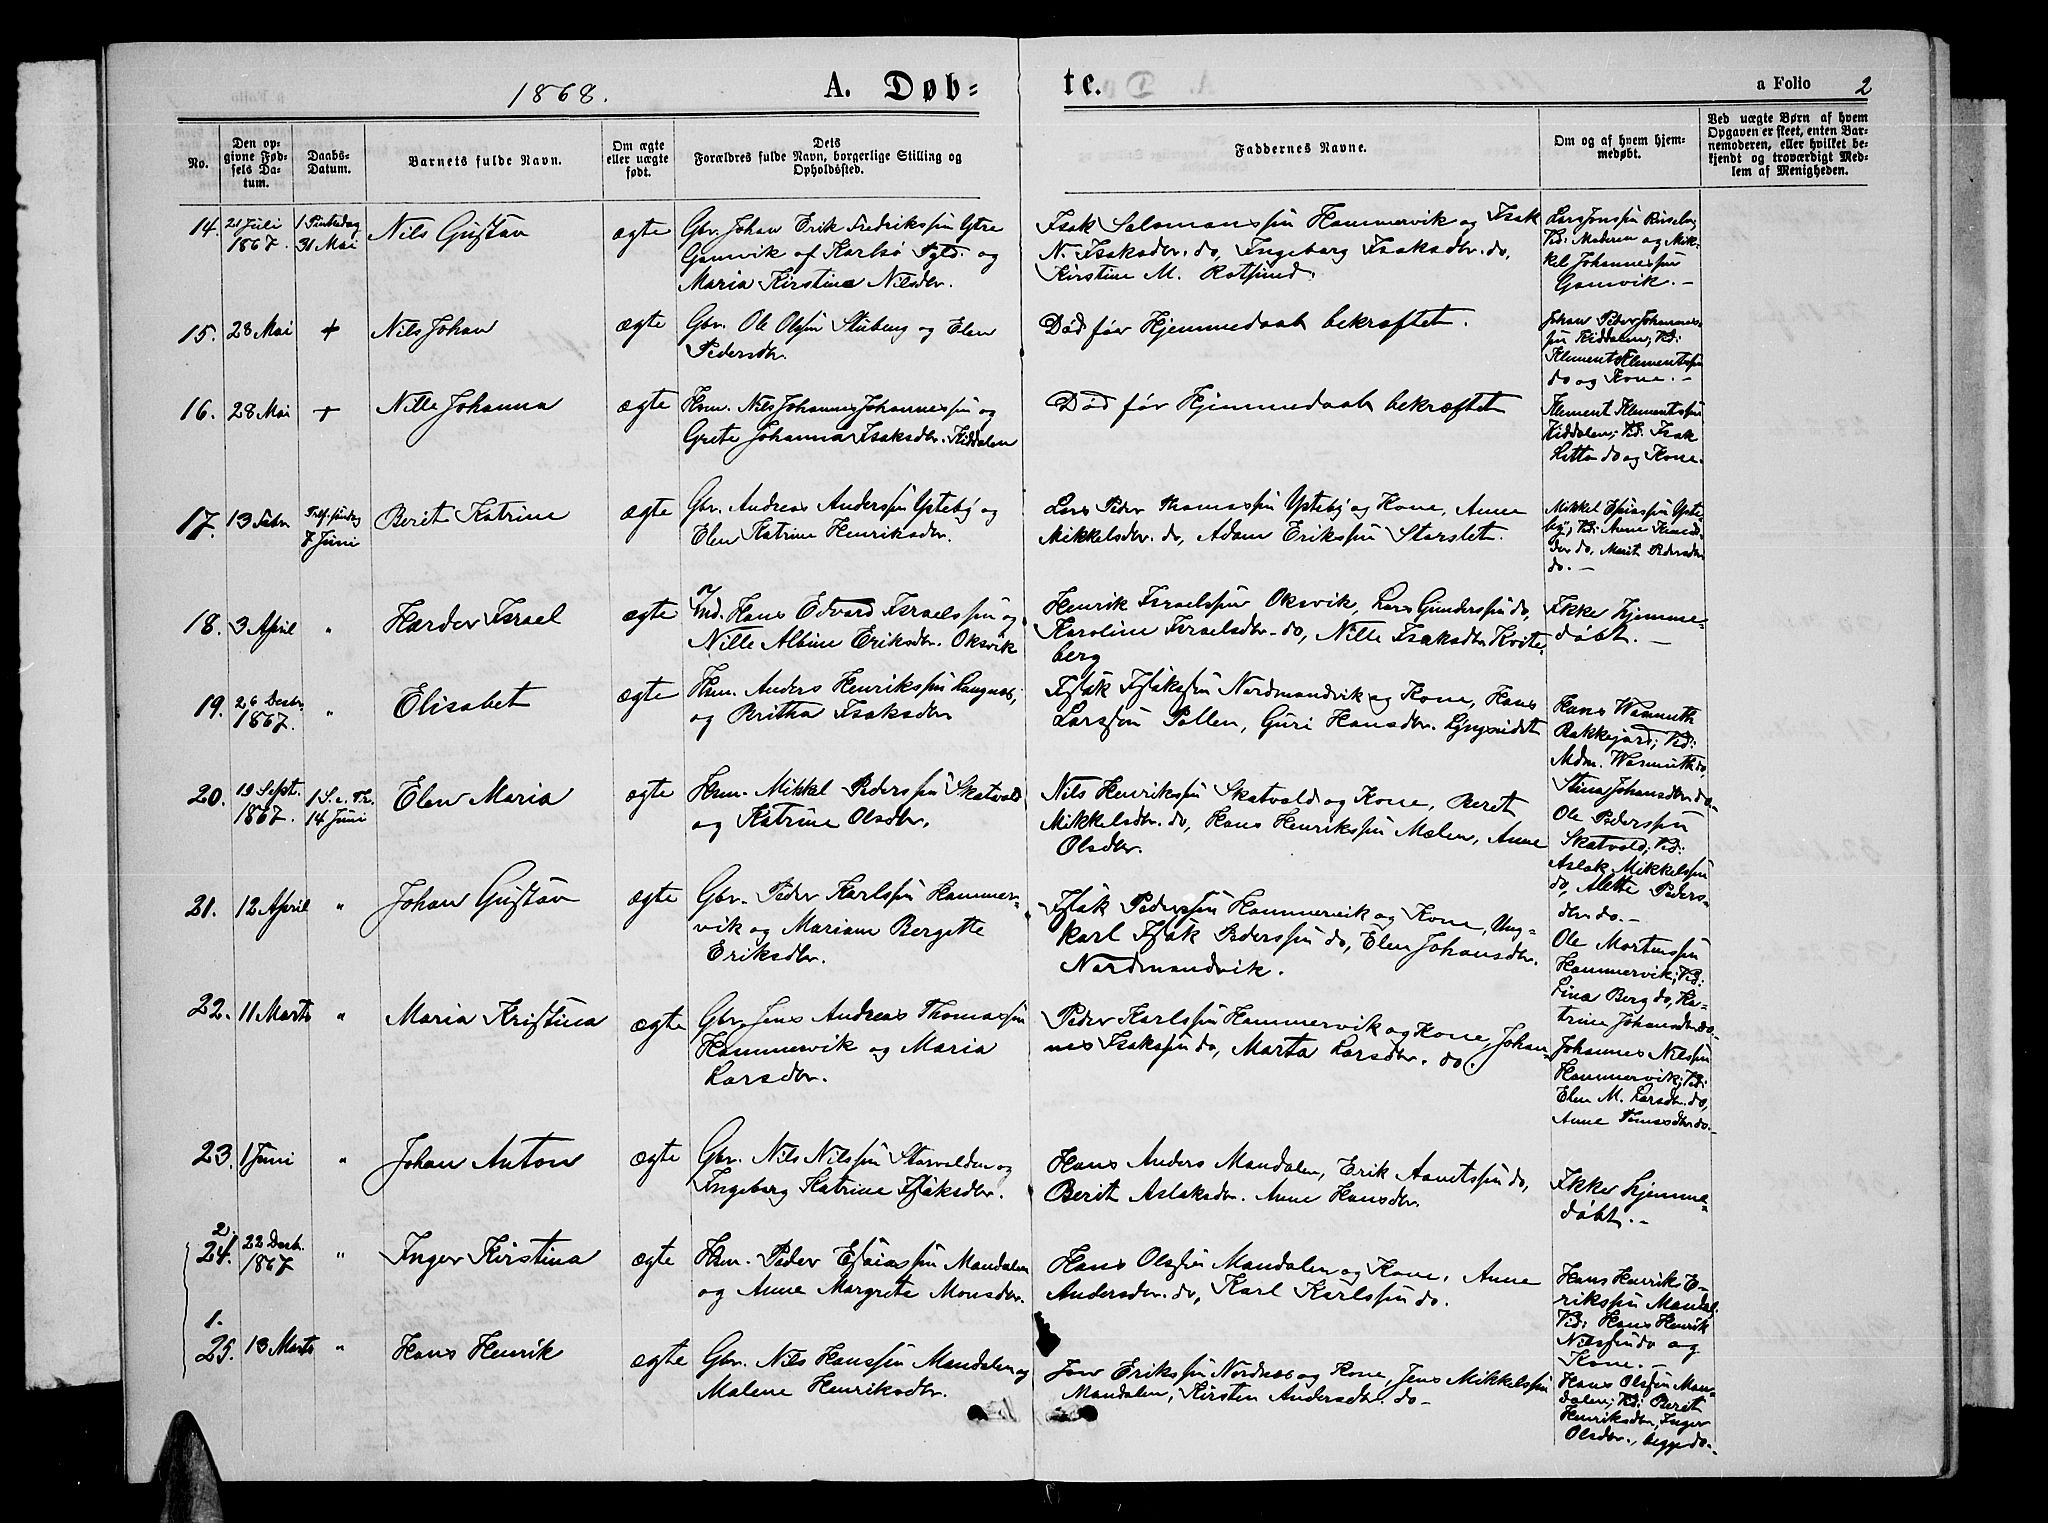 1868. A. Døb= te. a Folio 2
No.
Den op-
givne Fød-
sels Da-
tum.
Daabs-
Datum.
Barnets fulde Navn.
Om ægte
eller uægte
født.
Dets
Forældres fulde Navn, borgerlige Stilling og
Opholdssted.
Faddernes Navne.
Om og af hvem hjem-
medøbt.
Ved uægte Børn af hvem
Opgaven er skeet, enten Bar-
nemoderen, eller hvilket be-
kjendt og troværdigt Med-
lem af Menigheden.
14.
21 Juli
1867.
1 Pintsedag
31 Mai
Nils Gustav
ægte
Gbr. Johan Erik Fredrikssøn Ytre
Gamvik af Karlsø Pgld. og
Maria Kirstine Nilsdtr.
Isak Salamonssøn Hammervik og Isak
N. Isaksdtr. do, Ingeborg Isaksdtr. do,
Kirstine M. Rotsund.
Lars Jonssøn
Vid: Moderen og Mik-
kel Johannessøn
Gamvik. -
15.
28 Mai
+
Nils Johan
ægte
Gbr. Ole Olssøn Stuberg og Elen
Pedersdtr.
Død før Hjemmedaab bekræftet.
Johan Peder Johannes-
søn Kiddalen; Vid:
Klement Klementssøn
do og Kone. -
16.
28 Mai
+
Nille Johanna
ægte
Hsm. Nils Johannes Johannessøn og
Grete Johanna Isaksdtr. Kiddalen
Død før Hjemmedaab bekræftet
Klement Klementssøn
Kiddalen; Vid: Isak
do og Kone.
17.
13 Febr
Tref. søndag
7 Juni
Berit Katrine
ægte
Gbr. Andreas Anderssøn Ysteby og
Elen Katrine Henriksdtr.
Lars Peder Thomassøn Ysteby og Kone, Anne
Mikkelsdtr. do, Adam Erikssøn Storslet.
Mikkel Esaiassøn Yste-
by; Vid: Anne
dtr do, Marit Pedersdtr
do. -
18.
3 April
"
Hærder Israel
ægte
Ind. Hans Edvard Israelssøn og
Nille Albine Eriksdtr. Oksvik
Henrik Israelssøn Oksvik, Lars Gunderssøn do,
Karoline Israelsdtr. do, Nille Isaksdtr. Kvite-
berg
Ikke hjemme-
døbt. -
19.
26 Decbr.
1867.
"
Elisabet
ægte
Hsm. Anders Henrikssøn Langnes,
og Britha Isaksdtr
Isak Isakssøn Nordmandvik og Kone, Hans
Larssøn Pollen, Guri Hansdtr. Lyngseidet
Hans Warmuth
Rakkejord; Vid:
Mdm. Warmuth do,
Stina Johansdtr. do. -
20.
19 Sept.
1867.
1 S. e. Tr.
14 Juni
Elen Maria
ægte
Hsm. Mikkel Pederssøn Skatvold
og Katrine Olsdtr.
Nils Henrikssøn Skatvold og Kone, Berit
Mikkelsdtr. do, Hans Henrikssøn Mælen, Anne
Olsdtr.
Ole Pederssøn
Skatvold; Vid:
Aslak Mikkelssøn
do, Alette Peders-
dtr do. -
21.
12 April
"
Johan Gustav
ægte
Gbr. Peder Karlssøn Hammer-
vik og Mariane Bergitte
Eriksdtr.
Isak Pederssøn Hammervik og Kone, Ung-
karl Isak Pederssøn do, Elen Johansdtr.
Nordmandvik.
Ole Mortenssøn
Hammervik; Vid:
Lina Berg do, Ka-
trine Johansdtr. do. -
22.
11 Marts
"
Maria Kristina
ægte
Gbr. Jens Andreas Thomassøn
Hammervik og Maria
Larsdtr.
Peder Karlssøn Hammervik og Kone, Johan-
nes Isakssøn do, Marta Larsdtr. do.
Johannes Nilssøn
Hammervik; Vid:
Elen M. Larsdtr. do,
Anne Tomasdtr do. -
23.
1 Juni
"
Johan Anton
ægte
Gbr. Nils Nilssøn Storvolden og
Ingeborg Katrine Isaksdtr.
Hans Anders Mandalen, Erik Amitssøn do,
Berit Aslaksdtr. Anne Hansdtr.
Ikke hjemme-
døbt. -
2.
24.
22 Decb.
1867
"
Inger Kirstina
ægte
Hsm. Peder Esaiassøn Mandalen
og Anne Margreta Monsdtr.
Hans Olssøn Mandalen og Kone, Anne
Andersdtr. do, Karl Karlssøn do.
Hans Henrik E-
rikssøn Mandal.
Vid: Hans Henrik
Nilssøn do og
Kone. -
1.
25.
13 Marts
"
Hans Henrik
ægte
Gbr. Nils Hanssøn Mandalen og
Malene Henriksdtr.
Jon Erikssøn Nordnes og Kone, Jens Mikkelssøn
Mandalen, Kirsten Andersdtr. do -
Hans Olssøn Man-
dalen; Vid: Berit
Henriksdtr, Inger
Olsdtr., begge do. -